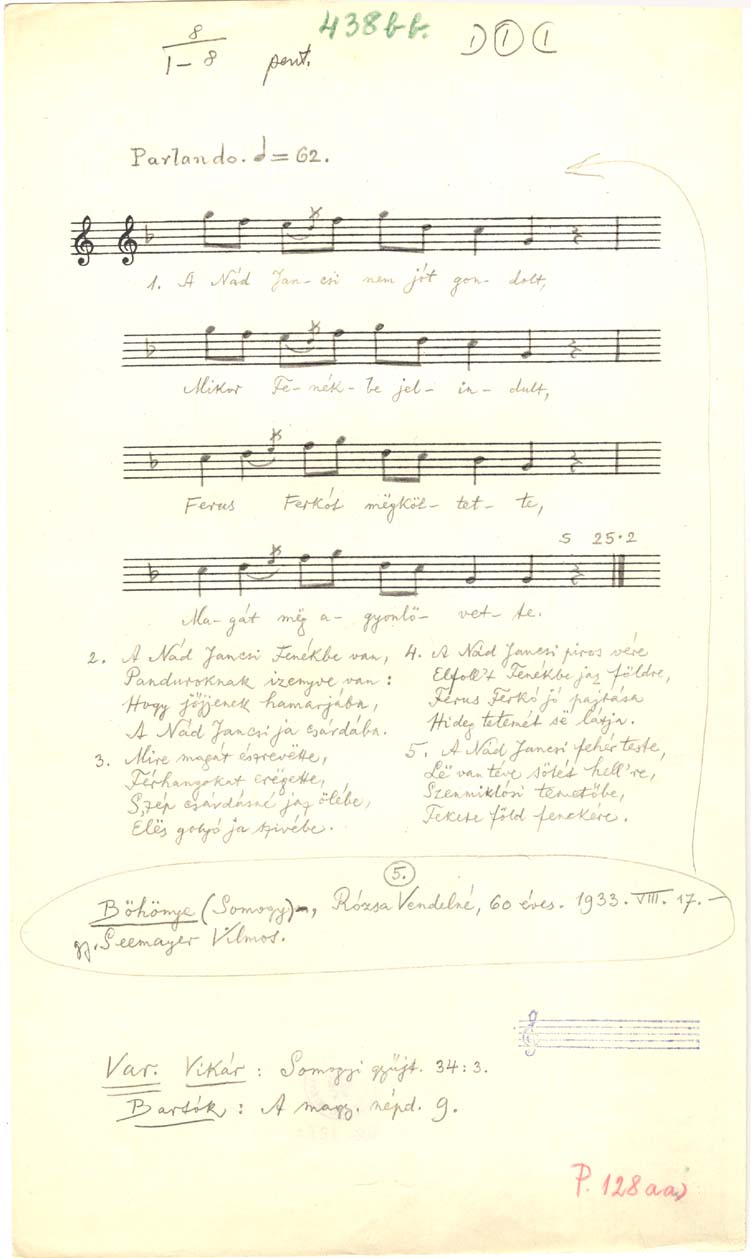 8
1-8 pent.
438bb.
Parlando. = 62.
1. A Nád Jan- csi nem jót gon- dolt,
Mikor Fe- nék- be jel- in- dult,
Ferus Ferkót mëgköl- tet- te,
S 25.2
Ma- gát mëg a- gyonlö- vet- te.
2. A Nád Jancsi Fenékbe van,
Panduroknak izenyve van:
Hogy jöjjenek hamarjába,
A Nád Jancsi ja csárdába.
3. Mire magát észrevëtte,
Férhangokat erëgette,
Szép csárdásné jaz ölébe,
Elës golyó ja szivébe.
4. A Nád Jancsi piros vére
Elfoll't Fenékbe jaz földre,
Ferus Ferkó jó pajtása
Hideg tetemét së látja.
5. A Nád Jancsi fehér teste,
Lë van téve sötét hell're,
Szenmiklósi temetőbe,
Fekete föld fenekére.
5.
Böhönye (Somogy), Rózsa Vendelné, 60 éves. 1933. VIII. 17. -
gy. Seemayer Vilmos.
Var. Vikár: Somogyi gyűjt. 34:3.
Bartók: A magy. népd. 9.
P. 128aa)